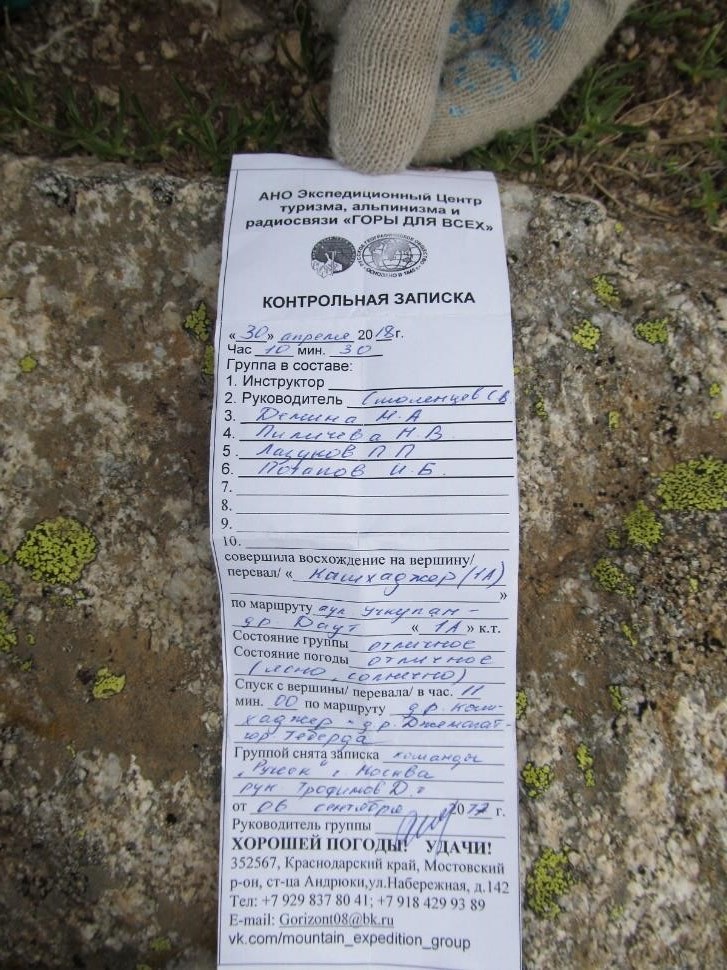 АНО Экспедиционный Центр
туризма, альпинизма и
радиосвязи «ГОРЫ ДЛЯ ВСЕХ»
КОНТРОЛЬНАЯ ЗАПИСКА
« 30 » апреля 2018г.
Час 10 мин. 30
Группа в составе:
1. Инструктор
2. Руководитель Смоленцев СВ
3. Демина Н.А
4. Пиличева Н.В.
5. Лагунов П П
6. Потапов И.Б.
7.
8.
9.
10.
совершила восхождение на вершину/
перевал/ « Кашхаджер (1А)
»
по маршруту аул Учкулан -
др. Даут « 1А » к.т.
Состояние группы отличное
Состояние погоды отличное
(ясно, солнечно)
Спуск с вершины/ перевала/ в час. 11
мин. 00 по маршруту д.р. Каш-
хаджер - д.р. Джемагат -
гор Теберда
Группой снята записка команды
г. Москва
рук. Трофимов Д.
от 06 сентября 2017 г.
Руководитель группы
ХОРОШЕЙ ПОГОДЫ! УДАЧИ!
352567, Краснодарский край, Мостовский
р-он, ст-ца Андрюки,ул.Набережная, д.142
Тел: +7 929 837 80 41; +7 918 429 93 89
E-mail: Gorizont08@bk.ru
vk.com/mountain_expedition_group